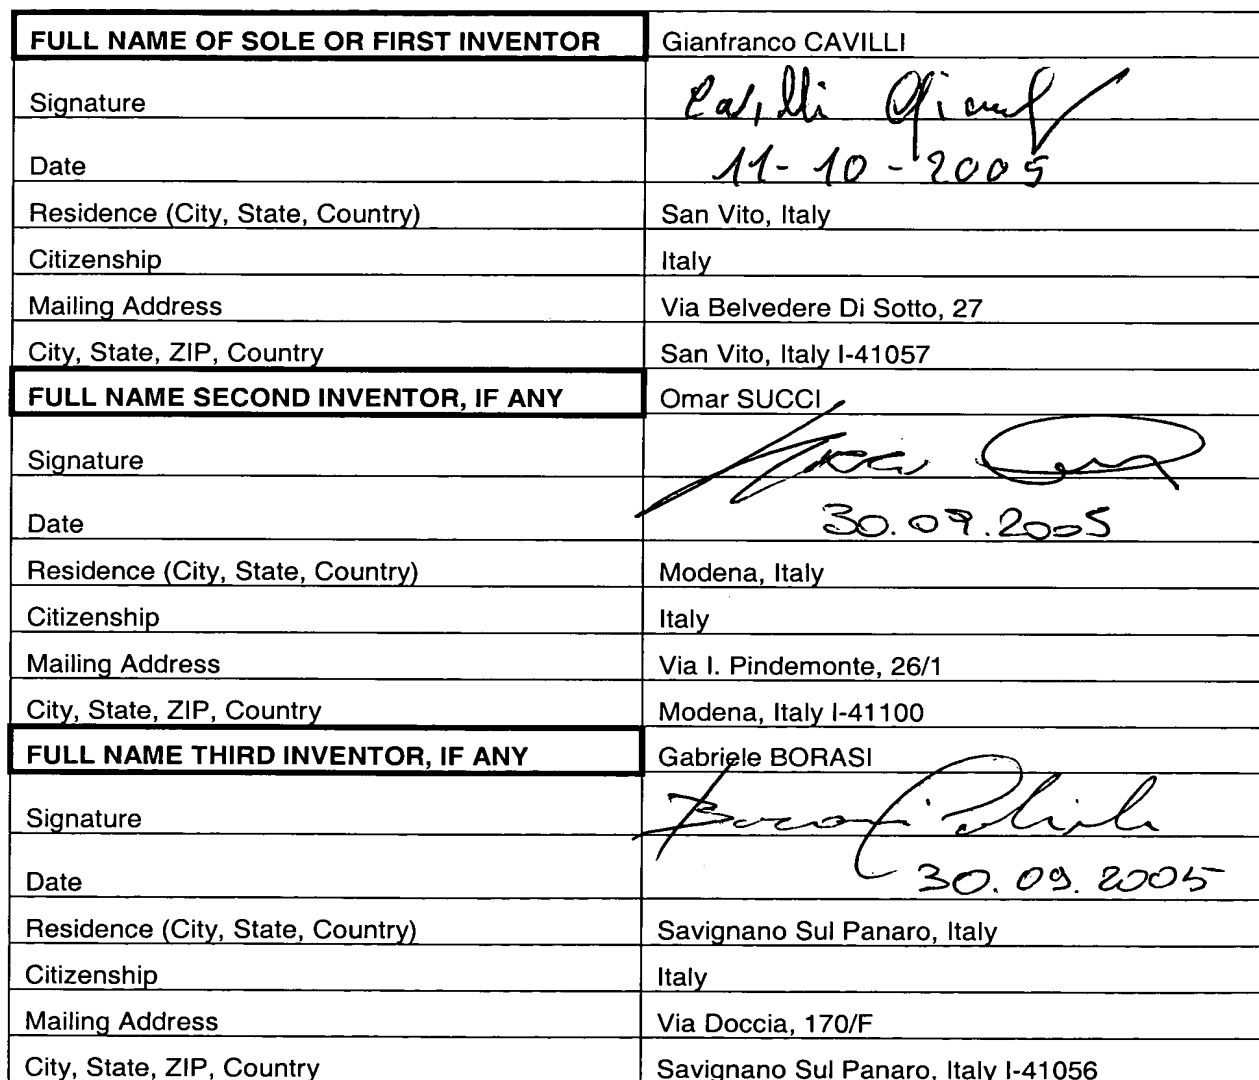 FULL NAME OF SOLE OR FIRST INVENTOR Gianfranco CAVILLI
Signature Cavilli Gianf
Date 11-10-2005
Residence (City, State, Country) San Vito, Italy
Citizenship Italy
Mailing Address Via Belvedere Di Sotto, 27
City, State, ZIP, Country San Vito, Italy I-41057
FULL NAME SECOND INVENTOR, IF ANY Omar SUCCI
Signature Succi
Date 30.09.2005
Residence (City, State, Country) Modena, Italy
Citizenship Italy
Mailing Address Via I. Pindemonte, 26/1
City, State, ZIP, Country Modena, Italy I-41100
FULL NAME THIRD INVENTOR, IF ANY Gabriele BORASI
Signature Borasi Gabriele
Date 30.09.2005
Residence (City, State, Country) Savignano Sul Panaro, Italy
Citizenship Italy
Mailing Address Via Doccia, 170/F
City, State, ZIP, Country Savignano Sul Panaro, Italy I-41056